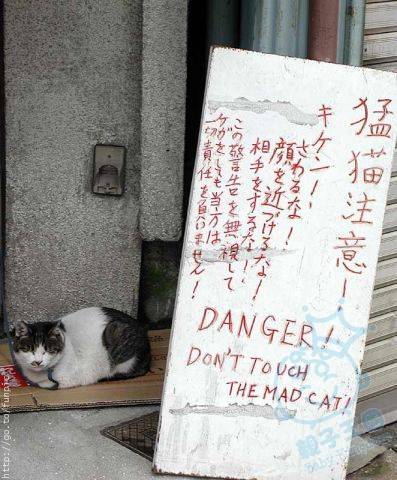 猛猫注意!
キケン!
さわるな!
顔を近づけるな!
相手をするな!
この警告を無視して
ケガをしても当方は
一切責任を負いません!
DANGER!
DON'T TOUCH
THE MAD CAT!
親子王國
http://go.to/funpic